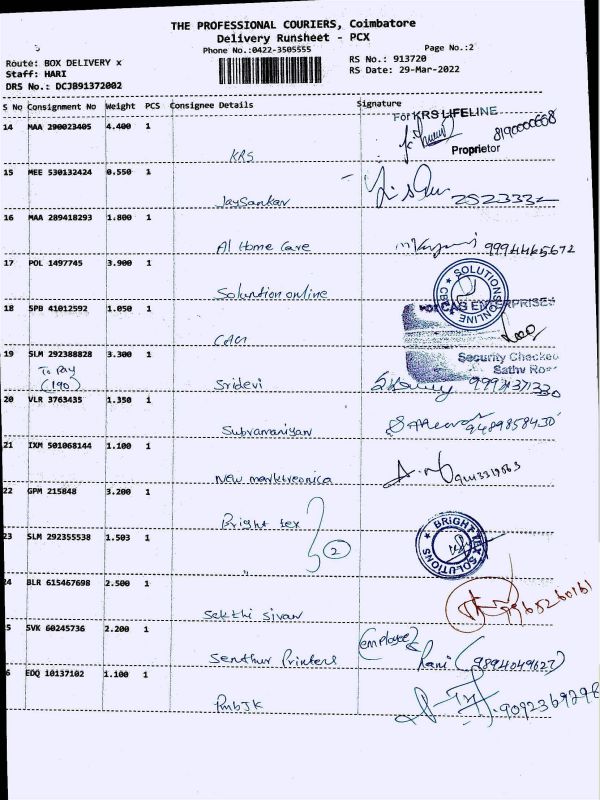 THE PROFESSIONAL COURIERS, Coimbatore
Delivery Runsheet - PCX
Phone No.:0422-3505555
Page No.:2
Route: BOX DELIVERY x
RS No.: 913720
Staff: HARI
RS Date: 29-Mar-2022
DRS No.: DCJB91372002
S No Consignment No Weight PCS Consignee Details Signature
14 MAA 290023405 4.400 1
For KRS LIFELINE
8190000668
Proprietor
KRS
15 MEE 530132424 0.550 1
Jaysankar
16 MAA 289418293 1.800 1
Al Home Care
9994465672
17 POL 1497745 3.900 1
Soluntion online
SOLUTIONS ONLINE
18 SPB 41012592 1.050 1
For CAG ENTERPRISES
Security Checked
19 SLM 292388828 3.300 1
To Pay
(190)
Sridevi
20 VLR 3763435 1.350 1
Subramaniyan
9489858430
21 IXM 501068144 1.100 1
22 GPM 215848 3.200 1
Bright tex
BRIGHT TEX SOLUTIONS
23 SLM 292355538 1.503 1
2
"
4 BLR 615467698 2.500 1
Sakthi Sivan
9965260161
5 SVK 60245736 2.200 1
(employee)
Senthur Printers
Rani (9894049627)
6 EDQ 10137102 1.100 1
RmbJK
9092369298